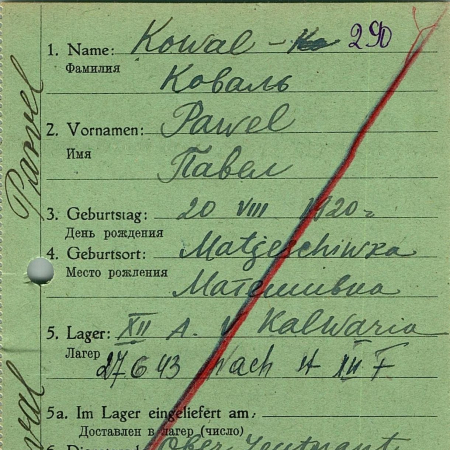 1. Name: Kowal – 290
Фамилия Коваль
2. Vornamen: Pawel
Имя Павел
3. Geburtstag: 20 VIII 1920 г
День рождения
4. Geburtsort: Matjeschiwka
Место рождения Матешивка
5. Lager: XII A. V Kalwaria
Лагер 27 6 43 nach XII F
5a. Im Lager eingeliefert am:
Доставлен в лагер (число)
Ober
Pawel